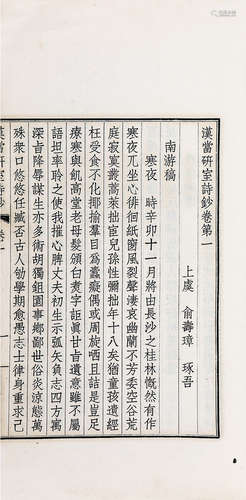 漢當研室詩鈔卷第一
上虞 俞壽璋 琢吾
南游稿
寒夜 時辛卯十一月將由長沙之桂林慨然有作
寒夜兀坐心徘徊紙窗風裂聲淒哀幽蘭不芳委空谷荒
庭寂寞叢蒿萊拙宦兒孫性彌拙年十八矣猶童孩遺經
枉受食不化揶揄羣目為蠢癡偶或周旋哂且詰是豈足
療寒與飢高堂老母髮頒白責子詎真甘肯遺意雖不屬
語坦率聆之使我摧心脾丈夫初生示弧矢負志四方寓
深旨降辱謀生亦多術胡獨鉏園事鄉鄙世俗炎涼態萬
殊衆口悠悠任臧否古人劬學期愈愚志士律身重求己
漢當研室詩鈔 卷一